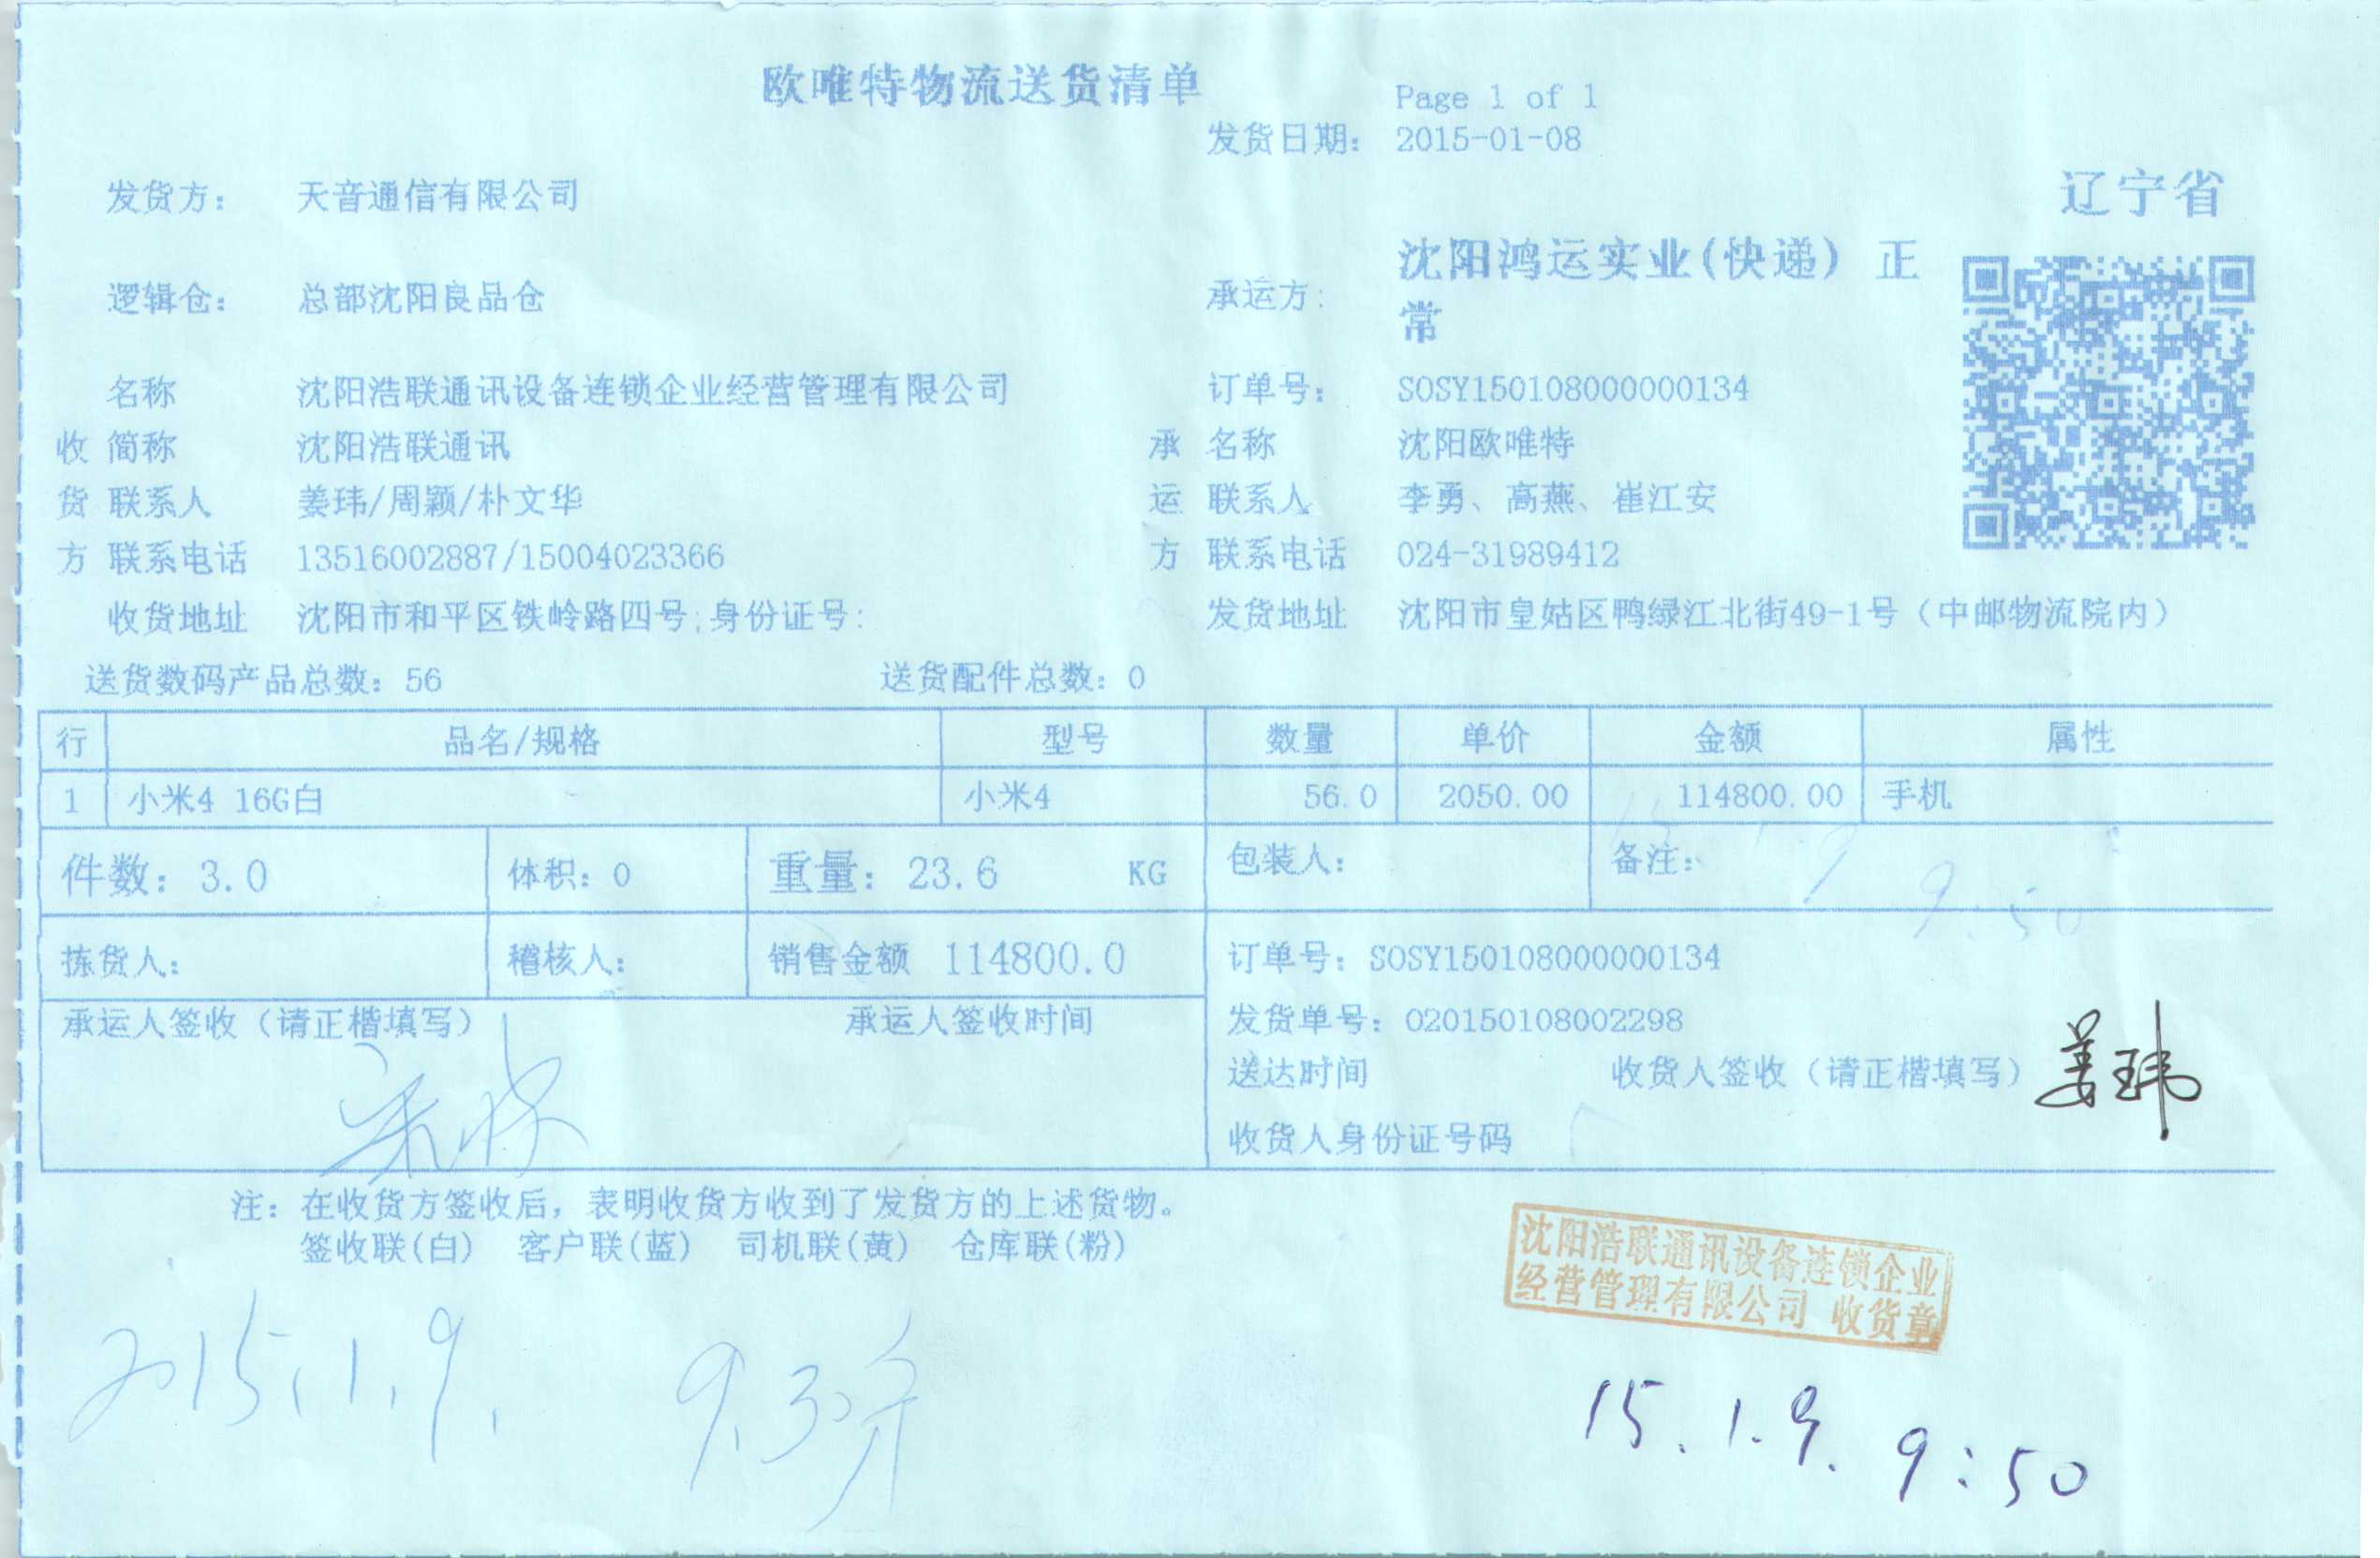 欧唯特物流送货清单
Page 1 of 1
发货日期： 2015-01-08
辽宁省
发货方： 天音通信有限公司
逻辑仓： 总部沈阳良品仓
承运方： 沈阳鸿运实业(快递) 正
常
名称 沈阳浩联通讯设备连锁企业经营管理有限公司 订单号： SOSY150108000000134
收 简称 沈阳浩联通讯 承 名称 沈阳欧唯特
货 联系人 姜玮/周颖/朴文华 运 联系人 李勇、高燕、崔江安
方 联系电话 13516002887/15004023366 方 联系电话 024-31989412
收货地址 沈阳市和平区铁岭路四号;身份证号: 发货地址 沈阳市皇姑区鸭绿江北街49-1号（中邮物流院内）
送货数码产品总数：56 送货配件总数：0
行 品名/规格 型号 数量 单价 金额 属性
1 小米4 16G白 小米4 56.0 2050.00 114800.00 手机
件数：3.0 体积：0 重量：23.6 KG 包装人： 备注：
9 9:50
拣货人： 稽核人： 销售金额 114800.0 订单号：SOSY150108000000134
承运人签收（请正楷填写） 承运人签收时间 发货单号：020150108002298
送达时间 收货人签收（请正楷填写） 姜玮
收货人身份证号码
注：在收货方签收后，表明收货方收到了发货方的上述货物。
签收联(白) 客户联(蓝) 司机联(黄) 仓库联(粉)
沈阳浩联通讯设备连锁企业
经营管理有限公司 收货章
2015.1.9. 9.30分
15.1.9. 9:50